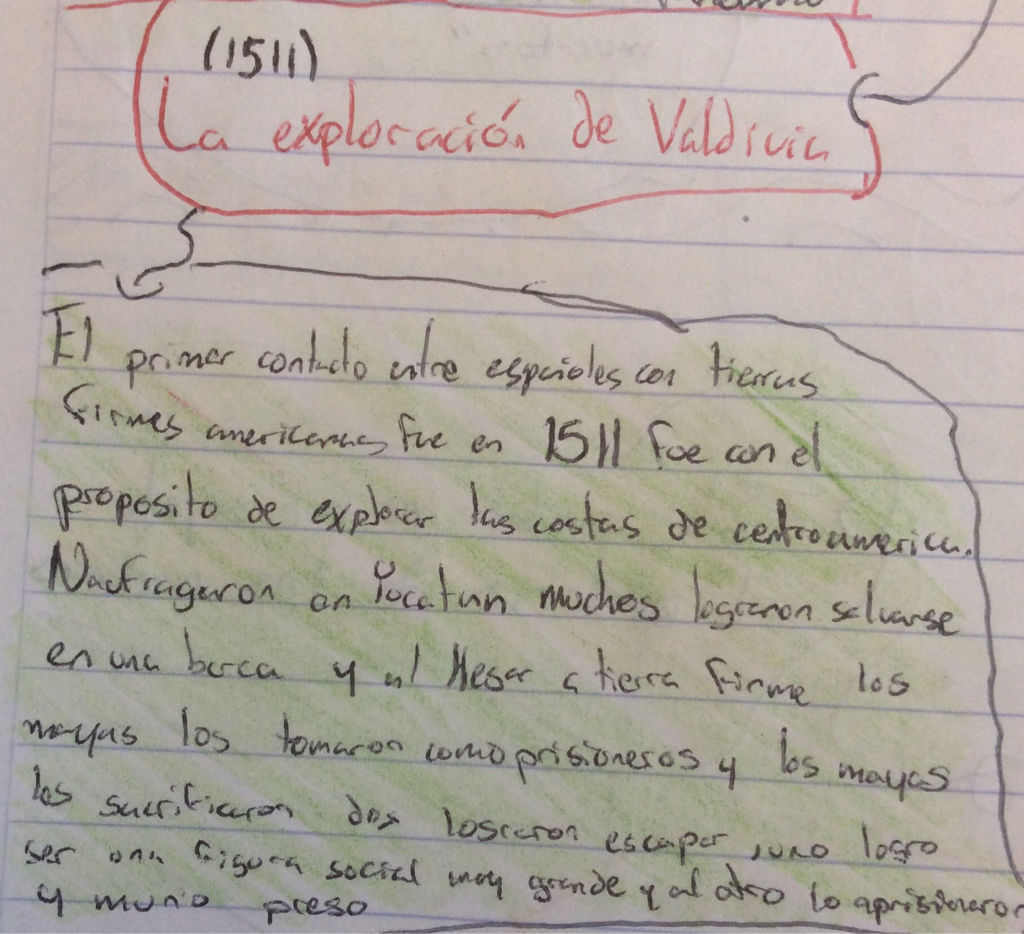 (1511)
La exploración de Valdivia
El primer contacto entre españoles con tierras
firmes americanas fue en 1511 Fue con el
proposito de explorar las costas de centroamerica.
Naufragaron en Yucatan muchos lograron salvarse
en una barca y al llegar a tierra firme los
mayas los tomaron como prisioneros y los mayas
los sacrificaron dos lograron escapar, uno logro
ser una figura social muy grande y al otro lo aprisionaron
y murio preso